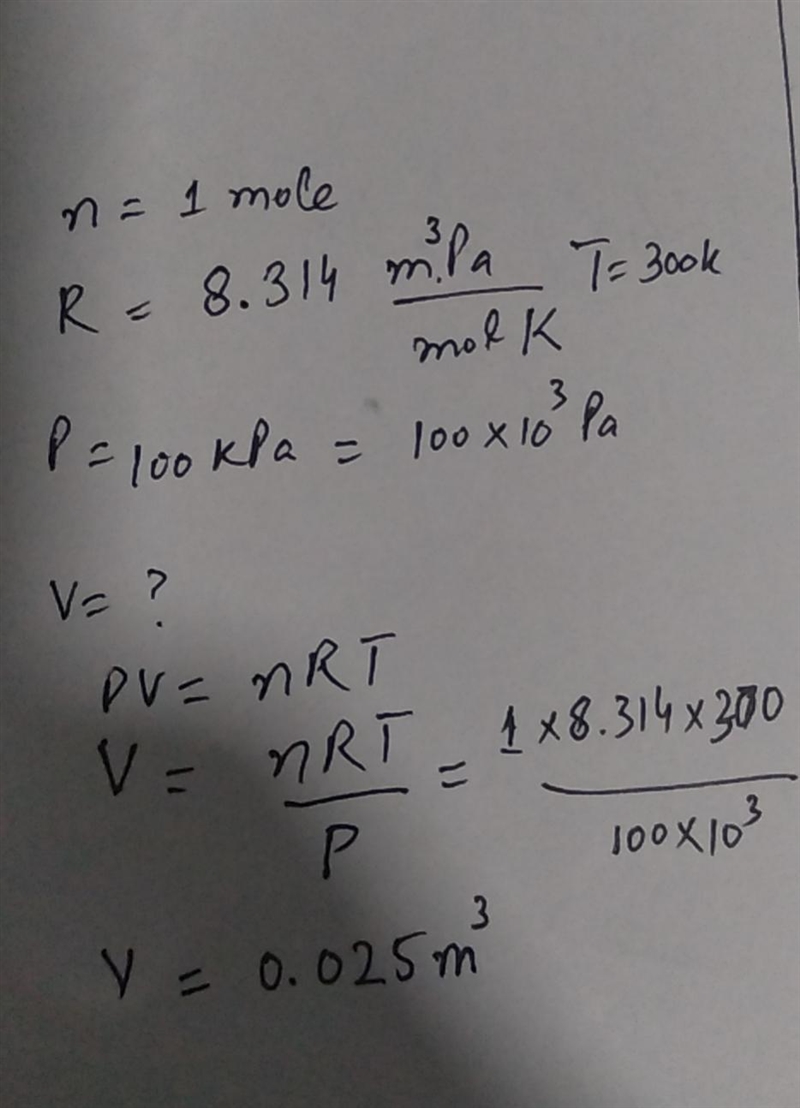 n = 1 mole
R = 8.314 m³.Pa / mol K T = 300k
P = 100 KPa = 100 × 10³ Pa
V = ?
PV = nRT
V = nRT / P = 1 × 8.314 × 300 / 100 × 10³
V = 0.025 m³